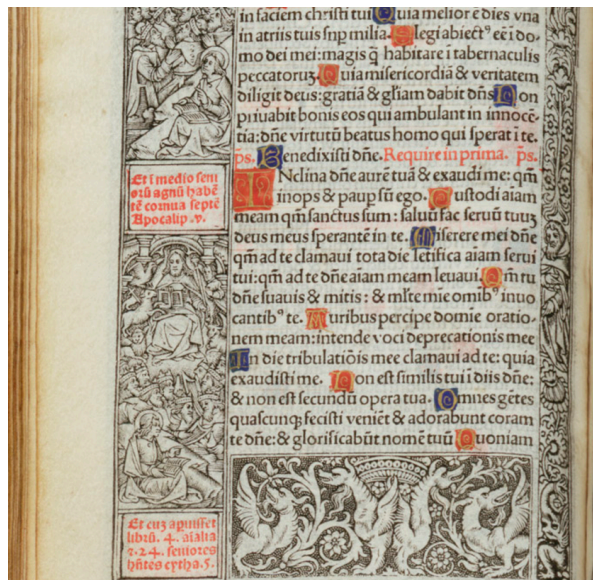 in faciem christi tui Quia melior ē dies vna
in atriis tuis sup milia. Elegi abiectꝰ eē i do-
mo dei mei: magis q̄ habitare i tabernaculis
peccatoruꝫ. Quia misericordiā & veritatem
diligit deus: gratiā & gl̄iam dabit dn̄s Non
priuabit bonis eos qui ambulant in innocē-
tia: dn̄e virtutū beatus homo qui sperat i te.
ps. Benedixisti dn̄e. Require in prima. ps.
INclina dn̄e aurē tuā & exaudi me: qm̄
inops & paup sū ego. Custodi aīam
meam qm̄ sanctus sum: saluū fac seruū tuuꝫ
deus meus sperantē in te. Miserere mei dn̄e
qm̄ ad te clamaui tota die letifica aīam serui
tui: qm̄ ad te dn̄e aīam meam leuaui. Qm̄ tu
dn̄e suauis & mitis: & ml̄te mīe omibꝰ inuo
cantibꝰ te. Auribus percipe domīe oratio-
nem meam: intende voci deprecationis mee
In die tribulatiōis mee clamaui ad te: quia
exaudisti me. Non est similis tui i diis dn̄e:
& non est secundū opera tua. Omnes gētes
quascunqꝫ fecisti veniēt & adorabunt coram
te dn̄e: & glorificabūt nomē tuū Quoniam
Et ī medio seni
orū agnū habē
tē cornua septē
Apocalip .v.
Et cuꝫ apuisset
librū. 4. aīalia
⁊. 24. seniores
hn̄tes cytha. 5.